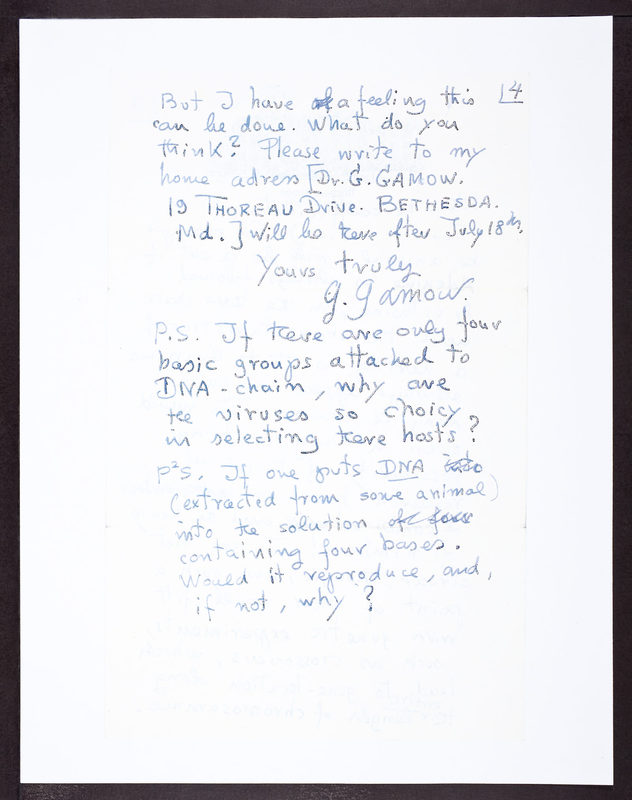 4
But I have a feeling this
can be done. What do you
think? Please write to my
home adress [Dr. G. GAMOW.
19 THOREAU Drive. BETHESDA.
Md.] Will be tere after July 18th.
Yours truly
G. Gamow.
P.S. If tere are only four
basic groups attached to
DNA-chain, why are
tee viruses so choicy
in selecting tere hosts?
P²S. If one puts DNA into
(extracted from some animal)
into te solution of four
containing four bases.
Would it reproduce, and,
if not, why?